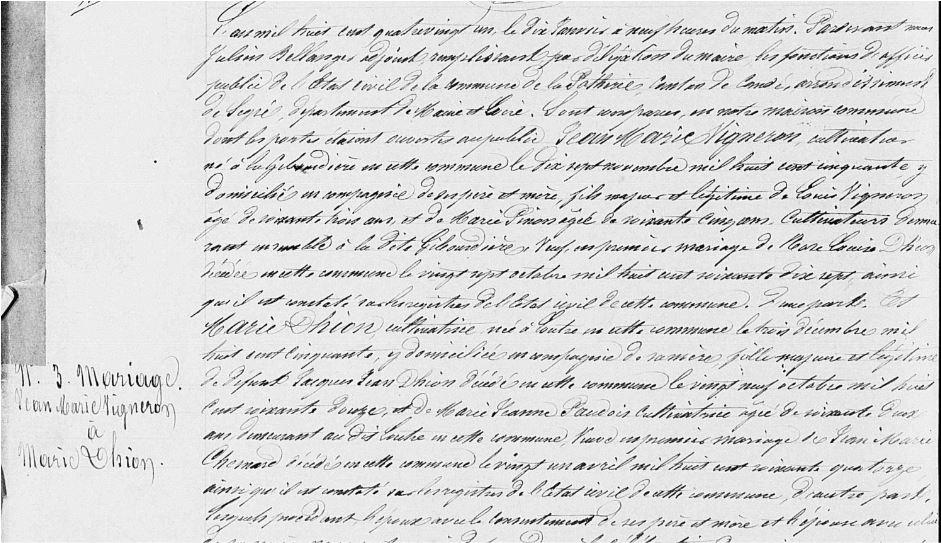 L'an mil huit cent quatre vingt un, le dix Janvier à neuf heures du matin. Pardevant nous
Julien Bellanger adjoint, remplissant par délégation du maire, les fonctions d'officier
public de l'Etat civil de la commune de la Potherie, canton de Candé, arrondissement
de Segré, département de Maine et Loire. Sont comparus, en notre maison commune
dont les portes étaient ouvertes au public, Jean Marie Vigneron, cultivateur
né à la Gibaudière en cette commune le dix sept novembre mil huit cent cinquante y
domicilié en compagnie de ses père et mère, fils majeur et légitime de Louis Vigneron
âgé de soixante trois ans, et de Marie Pinon âgée de soixante cinq ans, cultivateurs demeu
rant ensemble à la dite Gibaudière, Veuf en premier mariage de Rose Louise Dhion
décédée en cette commune le vingt sept octobre mil huit cent soixante dix sept, ainsi
qu'il est constaté sur les registres de l'Etat civil de cette commune. D'une part. Et
Marie Dhion cultivatrice, née à en cette commune le trois décembre mil
huit cent cinquante, y domiciliée en compagnie de sa mère, fille majeure et légitime
de défunt Jacques Jean Dhion décédé en cette commune le vingt neuf octobre mil huit
cent soixante douze, et de Marie Jeanne cultivatrice âgée de soixante deux
ans demeurant au dit en cette commune, Veuve en premier mariage de Jean Marie
décédé en cette commune le vingt un avril mil huit cent soixante quatorze
ainsi qu'il est constaté sur les registres de l'Etat civil de cette commune, d'autre part.
Lesquels procédant l'époux avec le consentement de ses père et mère et l'épouse avec celui
N°. 3. Mariage.
Jean Marie Vigneron
à
Marie Dhion.